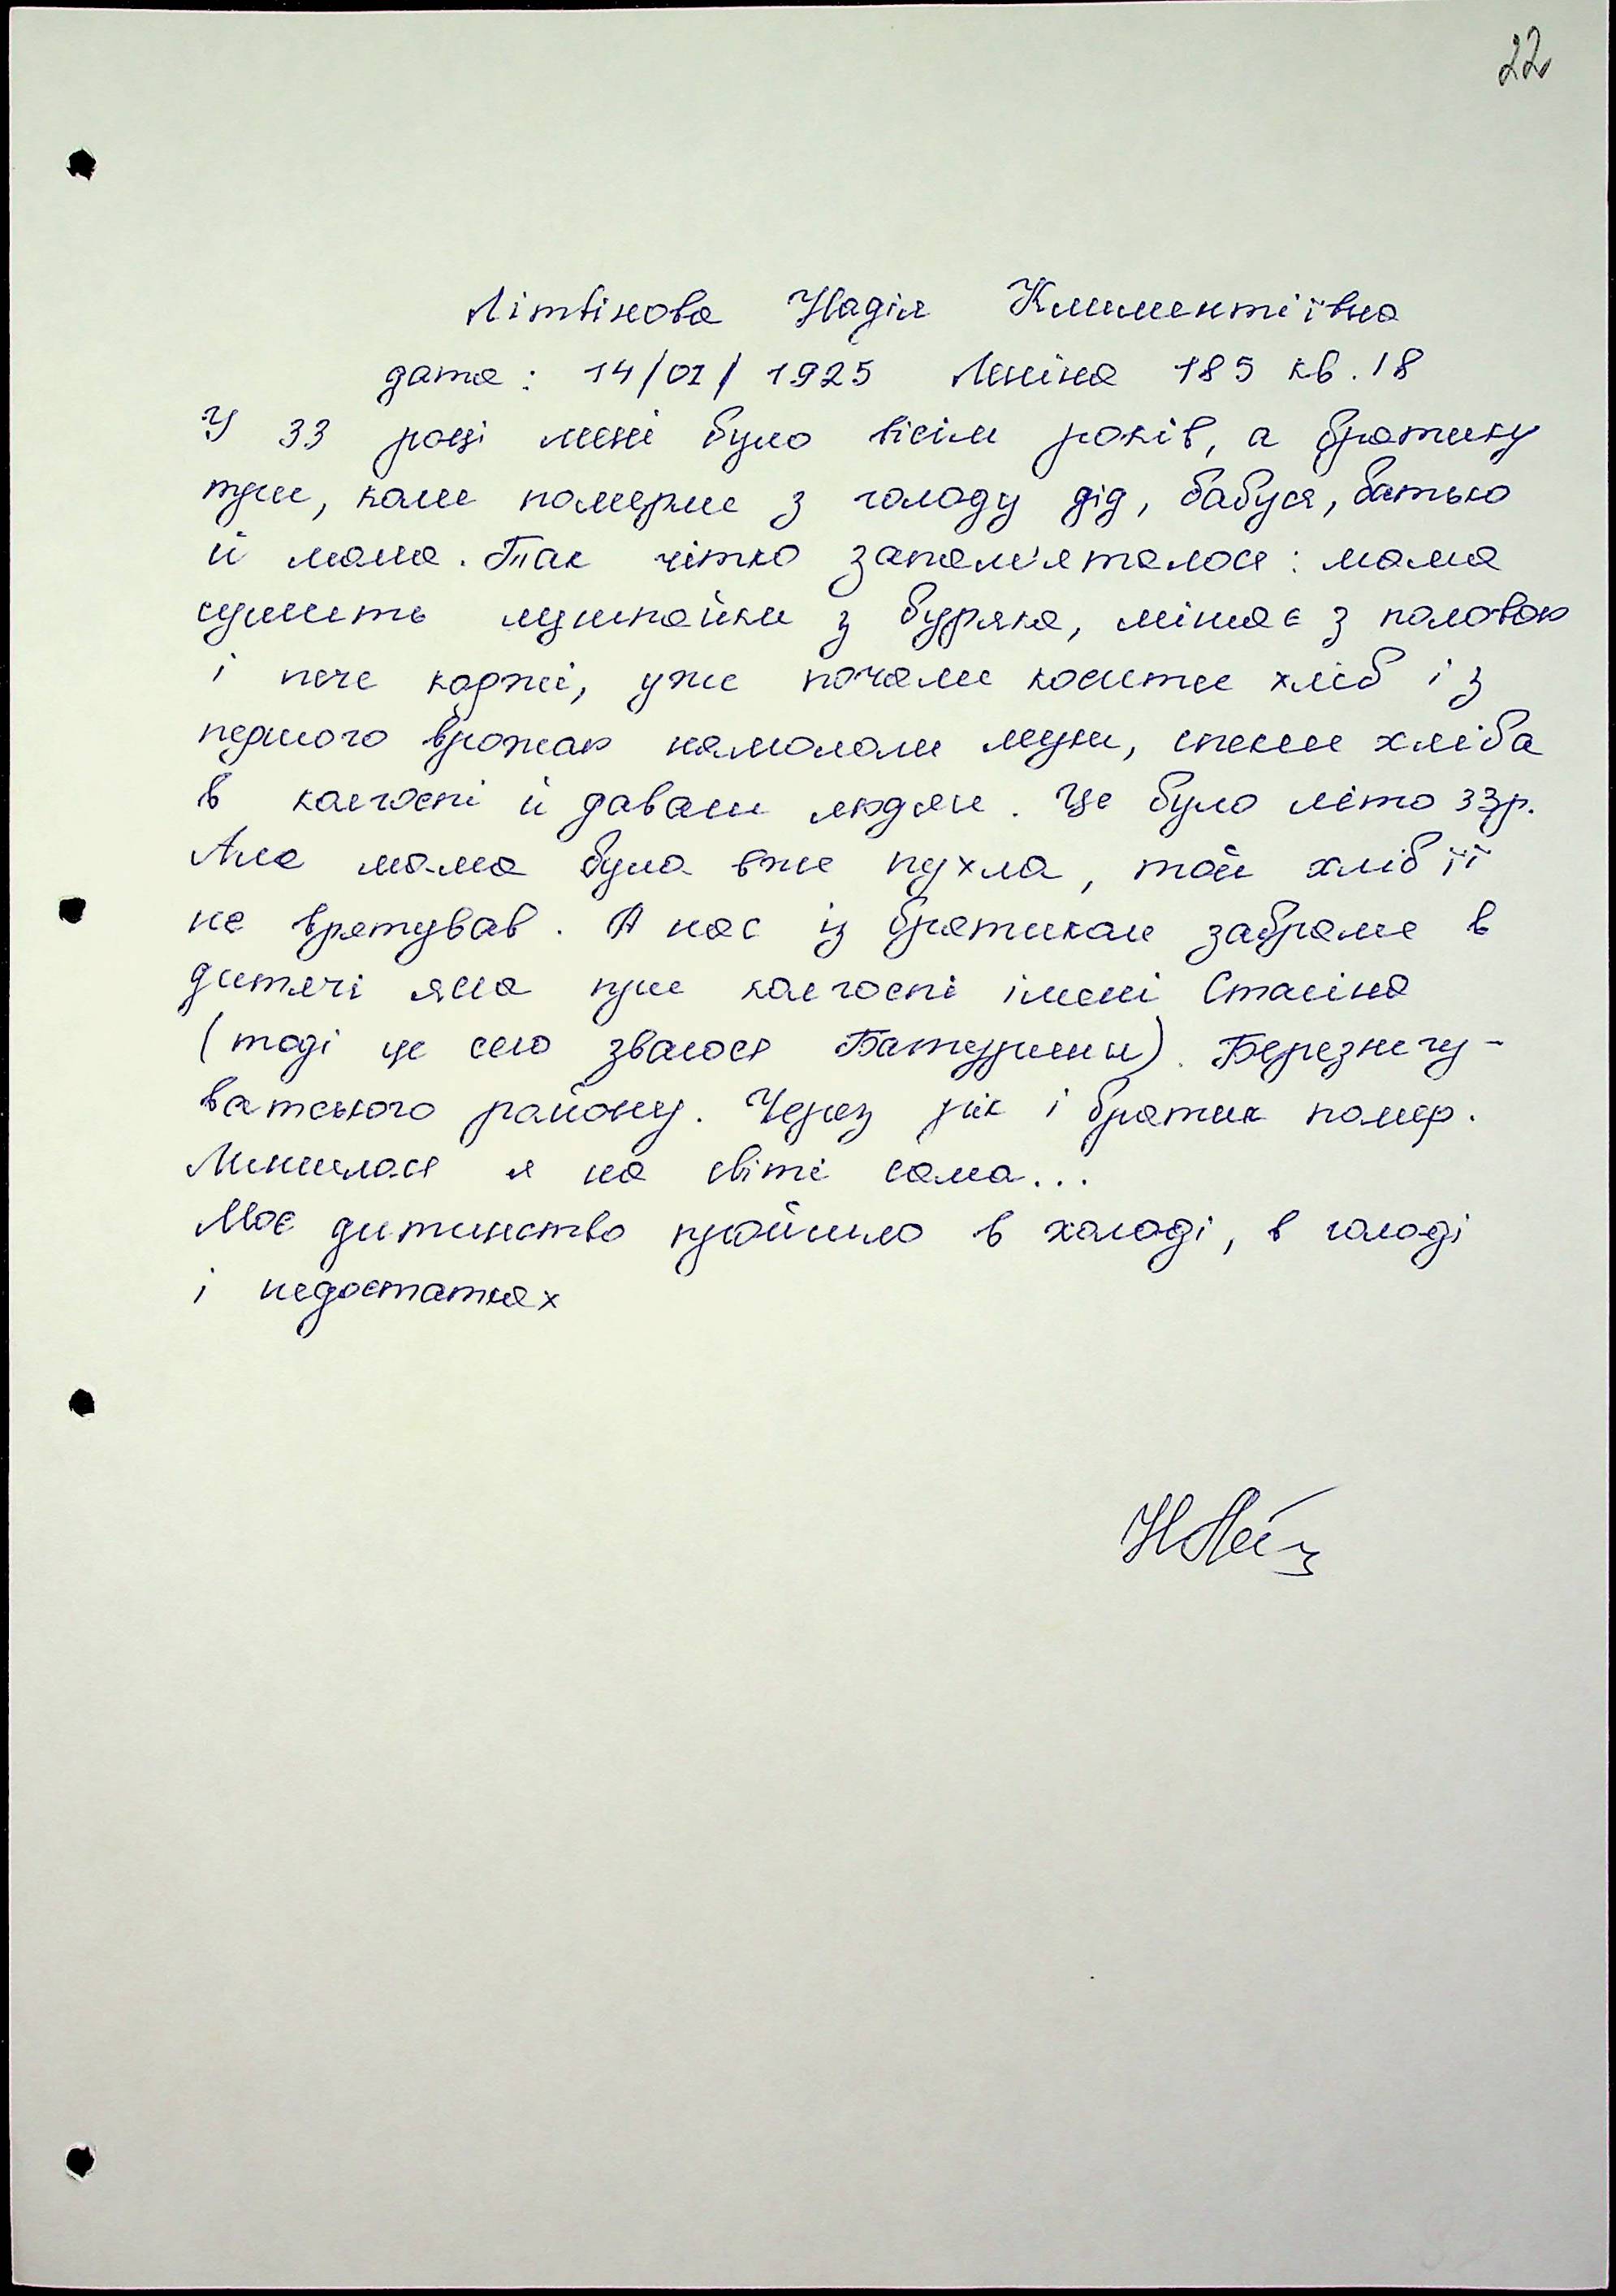 22
Літвінова Надія Климентіївна
дата: 14/01/1925 Леніна 185 кв. 18
У 33 році мені було вісім років, а братику
три, коли померли з голоду дід, бабуся, батько
й мама. Так чітко запам'яталося: мама
сушить лушпайки з буряка, мішає з половою
і пече коржі, уже почали косити хліб і з
першого врожаю намололи муки, спекли хліба
в колгоспі й давали людям. Це було літо 33р.
Але мама була вже пухла, той хліб її
не врятував. А нас із братиком забрали в
дитячі ясла при колгоспі імені Сталіна
(тоді це село звалося Батурини). Березнегу-
ватського району. Через рік і братик помер.
Лишилася я на світі сама...
Моє дитинство пройшло в холоді, в голоді
і недостатках